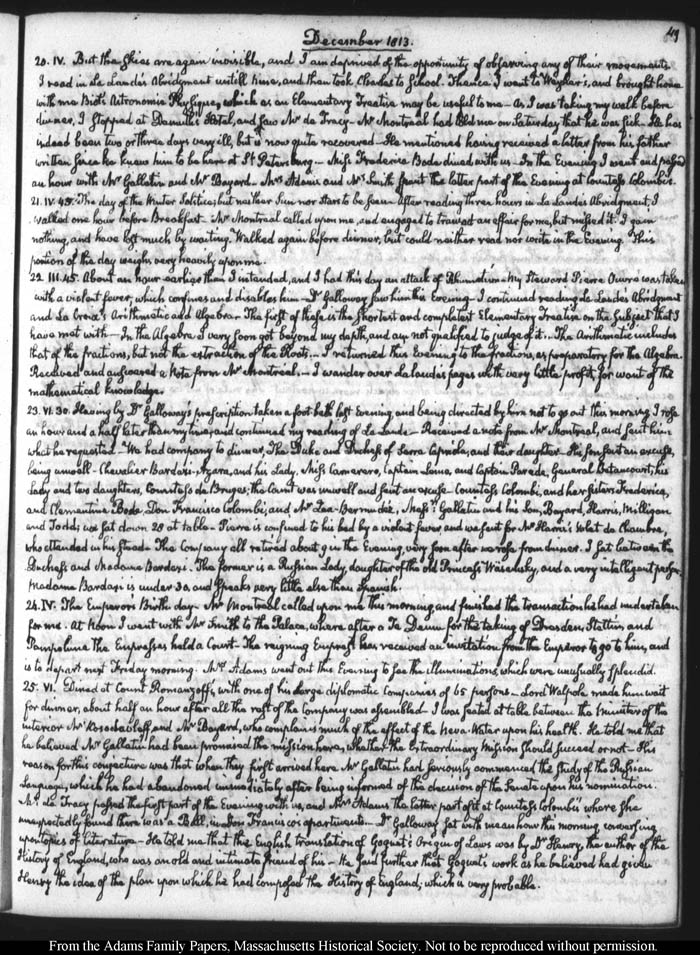 49
December 1813.
20. IV. But the skies are again invisible, and I am deprived of the opportunity of observing any of their movements.
I read in La Lande's Abridgment untill nine, and then took Charles to School. Thence I went to Weyher's, and brought home
with me Biot's Astronomie Physique, which as an Elementary Treatise may be useful to me — As I was taking my walk before
dinner, I stopped at Hotel, and saw Mr de Tracy — Mr Montreal had told me on Saturday that he was sick. He has
indeed been two or three days very ill, but is now quite recovered — He mentioned having received a letter from his father
written since he knew him to be here at St Petersburg — Miss Frederica Bode dined with us — In the Evening I went and passed
an hour with Mr Gallatin and Mr Bayard. Mrs Adams and Mrs Smith spent the latter part of the Evening at Countess Colombi's.
21. IV. 45. The day of the Winter Solstice; but neither Sun nor Stars to be seen. After reading three hours in La Lande's Abridgment, I
walked one hour before Breakfast. Mr Montreal called upon me, and engaged to transact an affair for me, but missed it. I gain
nothing, and have lost much by waiting. Walked again before dinner, but could neither read nor write in the Evening. This
portion of the day weighs very heavily upon me.
22. III. 45. About an hour earlier than I intended, and I had this day an attack of Rheumatism — My Steward Pierre was taken
with a violent fever, which confines and disables him — Dr Galloway saw him this Evening — I continued reading La Lande's Abridgment
and La Croix's Arithmetic and Algebra. The first of these is the shortest and completest Elementary Treatise on the Subject that I
have met with — In the Algebra I very soon got beyond my depth, and am not qualified to judge of it. The Arithmetic includes
that of the fractions, but not the extraction of the Roots. — I returned this Evening to the fractions, as preparatory for the Algebra.
Received and answered a Note from Mr Montreal. — I wander over Lalande's pages with very little profit, for want of the
mathematical knowledge.
23. VI. 30. Having by Dr Galloway's prescription taken a foot bath last Evening, and being directed by him not to go out this morning, I rose
an hour and a half later than my time, and continued my reading of La Lande — Received a note from Mr Montreal, and sent him
what he requested — We had company to dinner, The Duke and Duchess of Serra Capriola, and their daughter — His Son sent an excuse,
being unwell — Chevalier Bardaxi-Azara, and his Lady, Miss Camerero, Captain Lema, and Captain Pareda, General Betancourt, his
Lady and two daughters, Countess de Bruges; the Count was unwell and sent an excuse — Countess Colombi, and her sisters Frederica,
and Clementina Bode, Don Francisco Colombi, and Mr Zea-Bermudez, Messrs Gallatin and his Son, Bayard, Harris, Milligan
and Todd; we sat down 28 at table — Pierre is confined to his bed by a violent fever and we sent for Mr Harris's Valet de Chambre,
who attended in his stead — The Company all retired about 9 in the Evening, very soon after we rose from dinner. I sat between the
Duchess and Madame Bardaxi. The former is a Russian Lady, daughter of the old Princess Wiasemsky, and a very intelligent person.
Madame Bardaxi is under 30, and speaks very little else than Spanish.
24. IV. The Emperor's Birth day — Mr Montreal called upon me this morning and finished the transaction he had undertaken
for me. At Noon I went with Mr Smith to the Palace, where after a Te Deum for the taking of Dresden, Stettin, and
Pampelune the Empresses held a Court — The reigning Empress has received an invitation from the Emperor to go to him, and
is to depart next Friday morning. Mrs Adams went out this Evening to see the illuminations, which were unusually splendid.
25. VI. Dined at Count Romanzoff's, with one of his large diplomatic Companies of 65 persons — Lord Walpole made him wait
for dinner, about half an hour after all the rest of the Company was assembled. I was seated at table between the Minister of the
interior Mr Kosodavloff, and Mr Bayard, who complains much of the effect of the Neva Water upon his health. He told me that
he believed Mr Gallatin had been promised the mission here, whether the Extraordinary Mission should succeed or not — His
reason for this conjecture was that when they first arrived here Mr Gallatin had seriously commenced the study of the Russian
Language, which he had abandoned immediately after being informed of the decision of the Senate upon his nomination.
Mr de Tracy passed the first part of the Evening with us, and Mrs Adams the latter part of it at Countess Colombi's where she
unexpectedly found there was a Ball, in Don Francisco's apartments — Dr Galloway sat with me an hour this morning conversing
upon topics of Literature — He told me that the English translation of Goguet's Origin of Laws was by Dr Henry, the author of the
History of England, who was an old and intimate friend of his — He said further that Goguet's work as he believed had given
Henry the idea of the plan upon which he had composed the History of England; which is very probable.
From the Adams Family Papers, Massachusetts Historical Society. Not to be reproduced without permission.